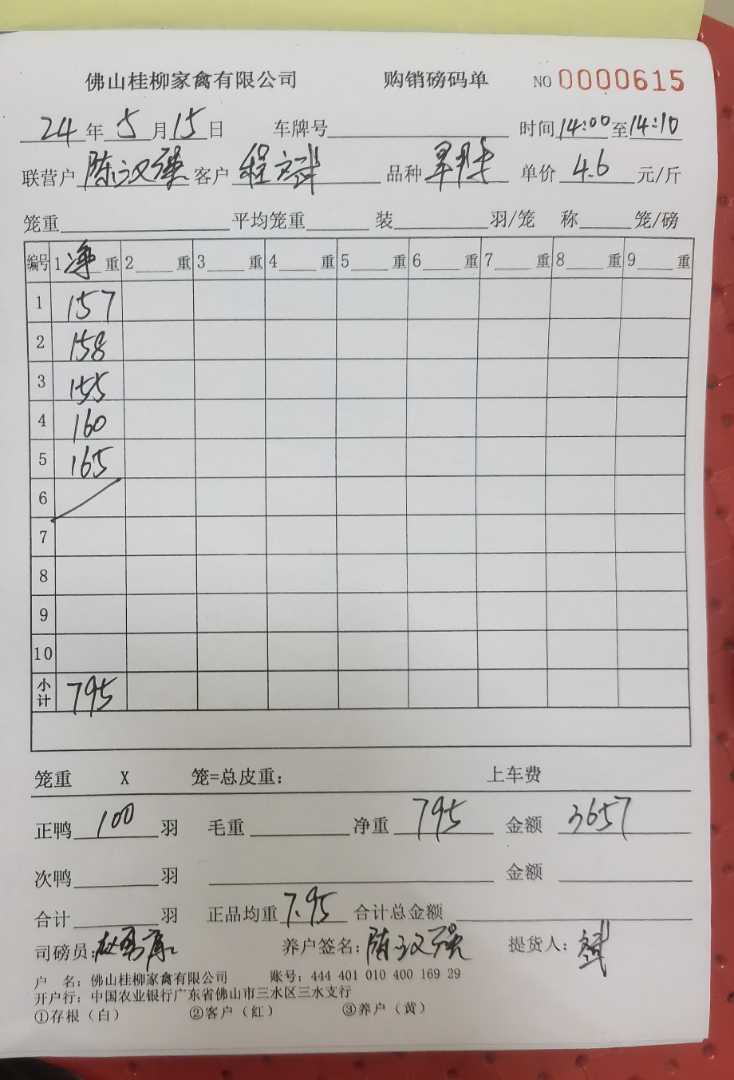 佛山桂柳家禽有限公司 购销磅码单 NO 0000615
24年5月15日 车牌号 时间14:00至14:10
联营户 陈汉强 客户 程斌 品种 单价 4.6 元/斤
笼重 平均笼重 装 羽/笼 称 笼/磅
编号 1净重 2 重 3 重 4 重 5 重 6 重 7 重 8 重 9 重
1 157
2 158
3 155
4 160
5 165
6
7
8
9
10
小计 795
笼重 X 笼=总皮重: 上车费
正鸭 100 羽 毛重 净重 795 金额 3657
次鸭 羽 金额
合计 羽 正品均重 7.95 合计总金额
司磅员: 养户签名: 陈汉强 提货人: 斌
户 名: 佛山桂柳家禽有限公司 账号: 444 401 010 400 169 29
开户行: 中国农业银行广东省佛山市三水区三水支行
①存根(白) ②客户(红) ③养户(黄)